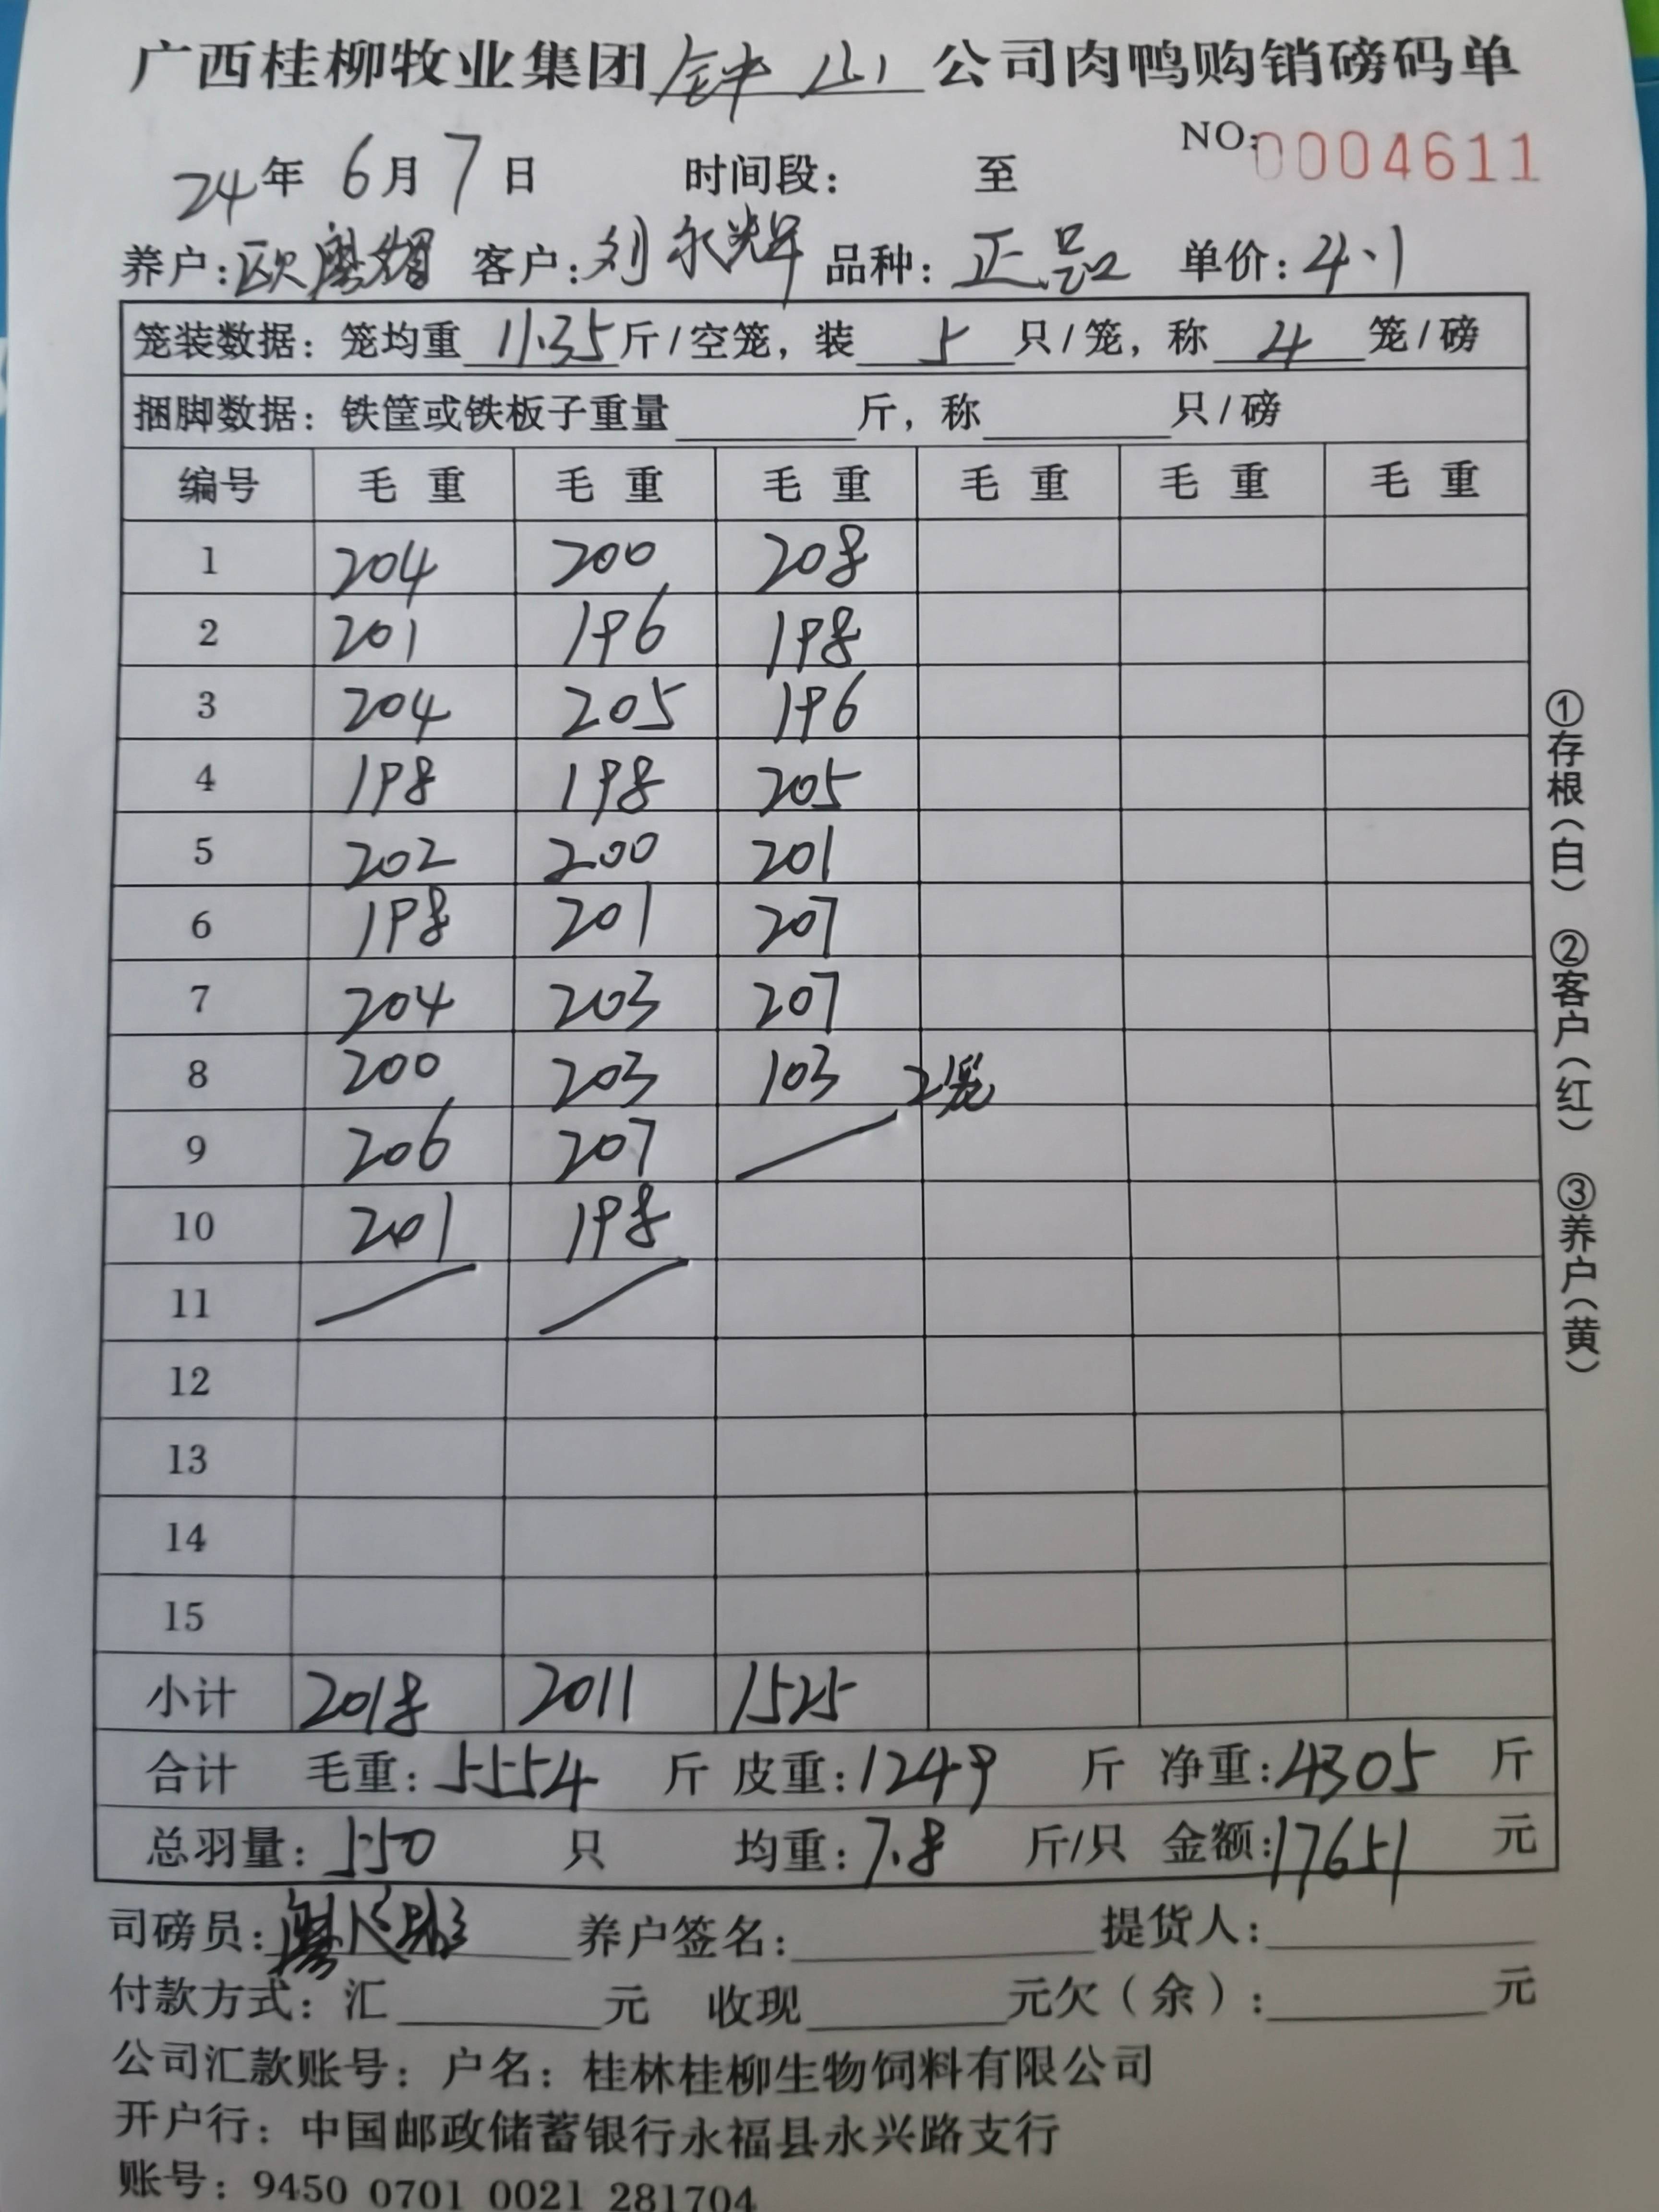 广西桂柳牧业集团钟山公司肉鸭购销磅码单
NO:0004611
24年 6月 7日 时间段: 至
养户:欧 客户:刘永辉 品种:正品 单价:4.1
笼装数据:笼均重 11.35 斤/空笼,装 5 只/笼,称 4 笼/磅
捆脚数据:铁筐或铁板子重量 斤,称 只/磅
编号 毛重 毛重 毛重 毛重 毛重 毛重
1 204 200 208
2 201 196 198
3 204 205 196
4 198 198 205
5 202 200 201
6 198 201 207
7 204 203 207
8 200 203 103 2笼
9 206 207
10 201 198
11
12
13
14
15
小计 2018 2011 1525
合计 毛重:5554 斤 皮重:1249 斤 净重:4305 斤
总羽量:550 只 均重:7.8 斤/只 金额:17651 元
司磅员: 养户签名: 提货人:
付款方式:汇 元 收现 元欠(余): 元
公司汇款账号:户名:桂林桂柳生物饲料有限公司
开户行:中国邮政储蓄银行永福县永兴路支行
账号:9450 0701 0021 281704
①存根(白) ②客户(红) ③养户(黄)